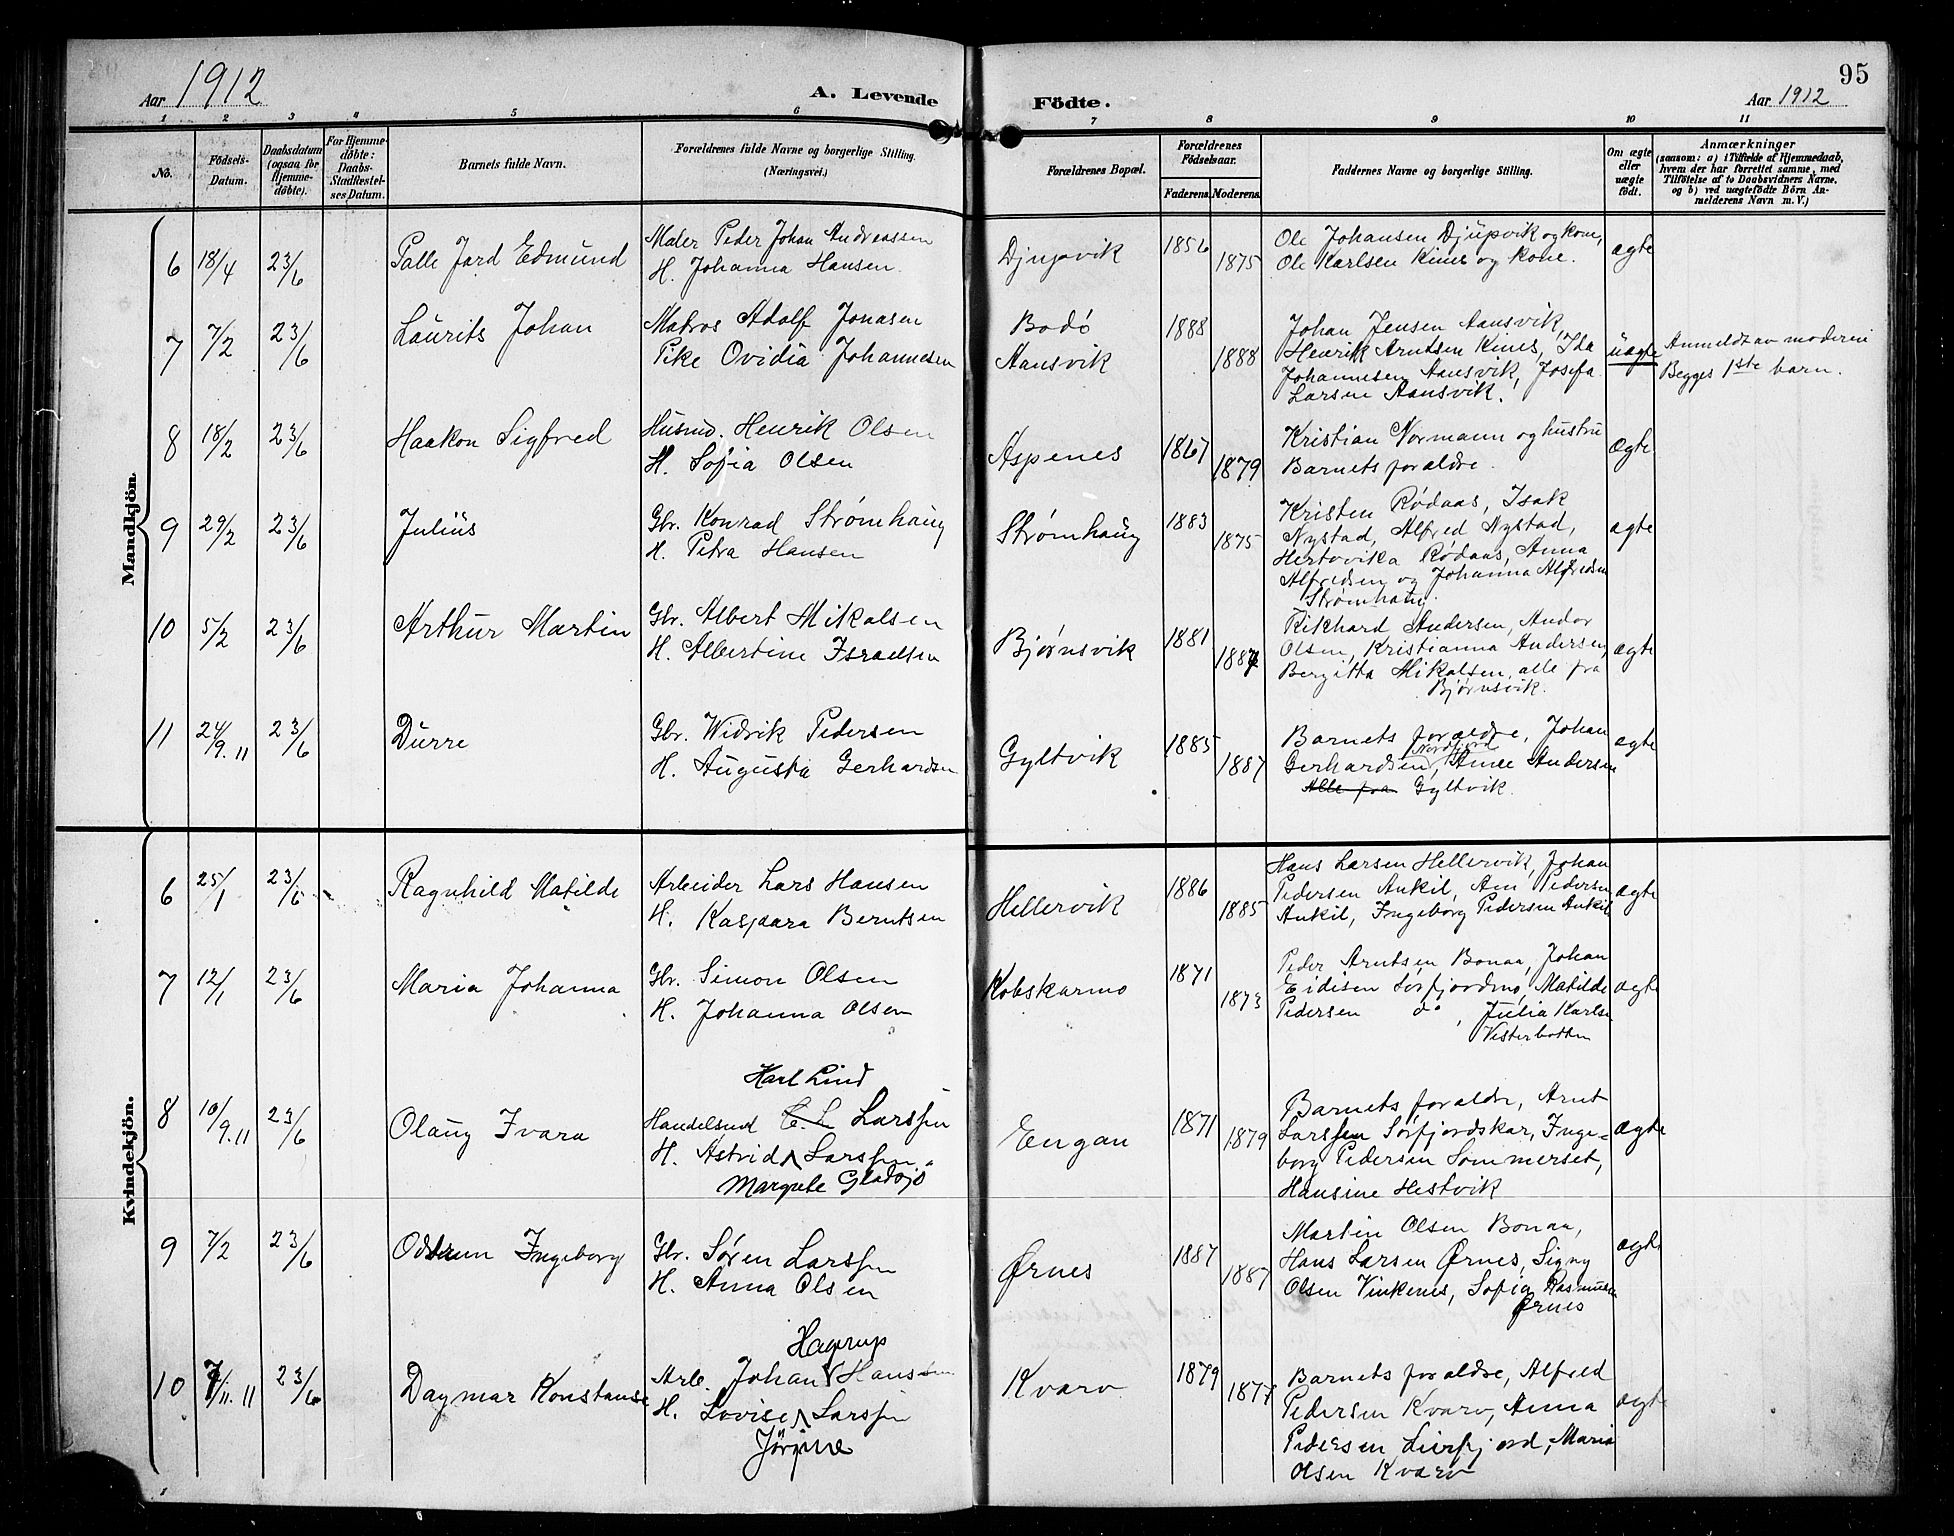 95
Aar 1912
A. Levende
Födte.
Aar 1912
1 2 3 4 5 6 7 8 9 10 11
No.
Födsels-
Datum.
Daabsdatum
(ogsaa for
Hjemme-
döbte).
For Hjemme-
döbte:
Daabs-
Stadfæstel-
ses Datum.
Barnets fulde Navn.
Forældrenes fulde Navne og borgerlige Stilling.
(Næringsvei.)
Forældrenes Bopæl.
Forældrenes
Födselsaar.
Faderens. Moderens.
Faddernes Navne og borgerlige Stilling.
Om ægte
eller
uægte
födt.
Anmærkninger
(saasom: a) i Tilfælde af Hjemmedaab,
hvem der har forrettet samme, med
Tilföielse af to Daabsvidners Navne,
og b) ved uægtefödte Börn An-
melderens Navn m. V.)
Mandkjön.
6 18/4 23/6 Palle Jard Edmund
Maler Peder Johan Andreassen
H. Johanna Hansen.
Djupvik 1856 1875
Ole Johansen Djupvik og kone,
Ole Karlsen Kines og kone.
ægte
7 7/2 23/6 Laurits Johan
Matros Adolf Jonasen
Pike Ovidia Johannesen
Bodö
Aansvik
1888 1888
Johan Jensen Aansvik,
Henrik Arntsen Kines, Ida
Johannesen Aansvik, Josefa
Larsen Aansvik.
uægte
Anmeldt av moderen
Begges 1ste barn.
8 18/2 23/6 Haakon Sigfred
Husmd. Henrik Olsen
H. Sofia Olsen
Aspenes 1867 1879
Kristian Normann og hustru
Barnets forældre.
Ægte
9 29/2 23/6 Julius
Gbr. Konrad Strømhaug
H. Petra Hansen
Strømhaug 1883 1875
Kristen Rødaas, Isak
Nystad, Alfred Nystad,
Hertvika Rødaas, Anna
Alfredsen og Johanna Alfredsen
Strømhaug.
ægte
10 5/2 23/6 Arthur Martin
Gbr. Albert Mikalsen
H. Albertine Israelsen
Bjørnsvik 1881
Rikhard Andersen, Andor
Olsen, Kristianna Andersen,
Bergitta Mikalsen, alle fra
Bjørnsvik.
ægte
11 24/9.11 23/6 Durre
Gbr. Widrik Pedersen
H. Augusta Gerhardsen
Gyltvik 1885 1887
Barnets forældre, Johan
Nordfjord
Gerhardsen, Anee Andersen
Alle fra Gyltvik.
ægte
Kvindekjön.
6 25/1 23/6 Ragnhild Matilde
Arbeider Lars Hansen
H. Kaspara Berntsen
Hellervik 1886 1885
Hans Larsen Hellervik, Johan
Pedersen Ankil, Pedersen
Ankil, Ingeborg Pedersen Ankil
ægte
7 12/1 23/6 Maria Johanna
Gbr. Simon Olsen
H. Johanna Olsen
Kobskarmo 1871 1873
Peder Arntsen Bonaa, Johan
Eidisen Sørfjordmo, Matilde
Pedersen do, Julia Karlsen
Vesterbotten
ægte
8 10/9.11 23/6 Olaug Ivara
Karl Lind
Handelsmd C. L. Larssen
H. Astrid Larssen
Margrete Gladsjø
Engan 1871 1879
Barnets forældre, Arnt
Larssen Sørfjordskar, Inge=
borg Pedersen Sommerset,
Hansine Hestvik
ægte
9 7/2 23/6 Oddrun Ingeborg
Gbr. Søren Larssen
H. Anna Olsen
Ørnes 1887 1887
Martin Olsen Bonaa,
Hans Larsen Ørnes, Signy
Olsen Vinkenes, Sofia Rasmussen
Ørnes
ægte
10 7/11.11 23/6 Dagmar Konstanse
Hagerup
Arb. Johan Hanssen
H. Lovise Larssen
Jörgine
Kvarv 1879 1877
Barnets forældre, Alfred
Pedersen Kvarv, Anna
Pedersen Leirfjord, Maria
Olsen Kvarv
ægte